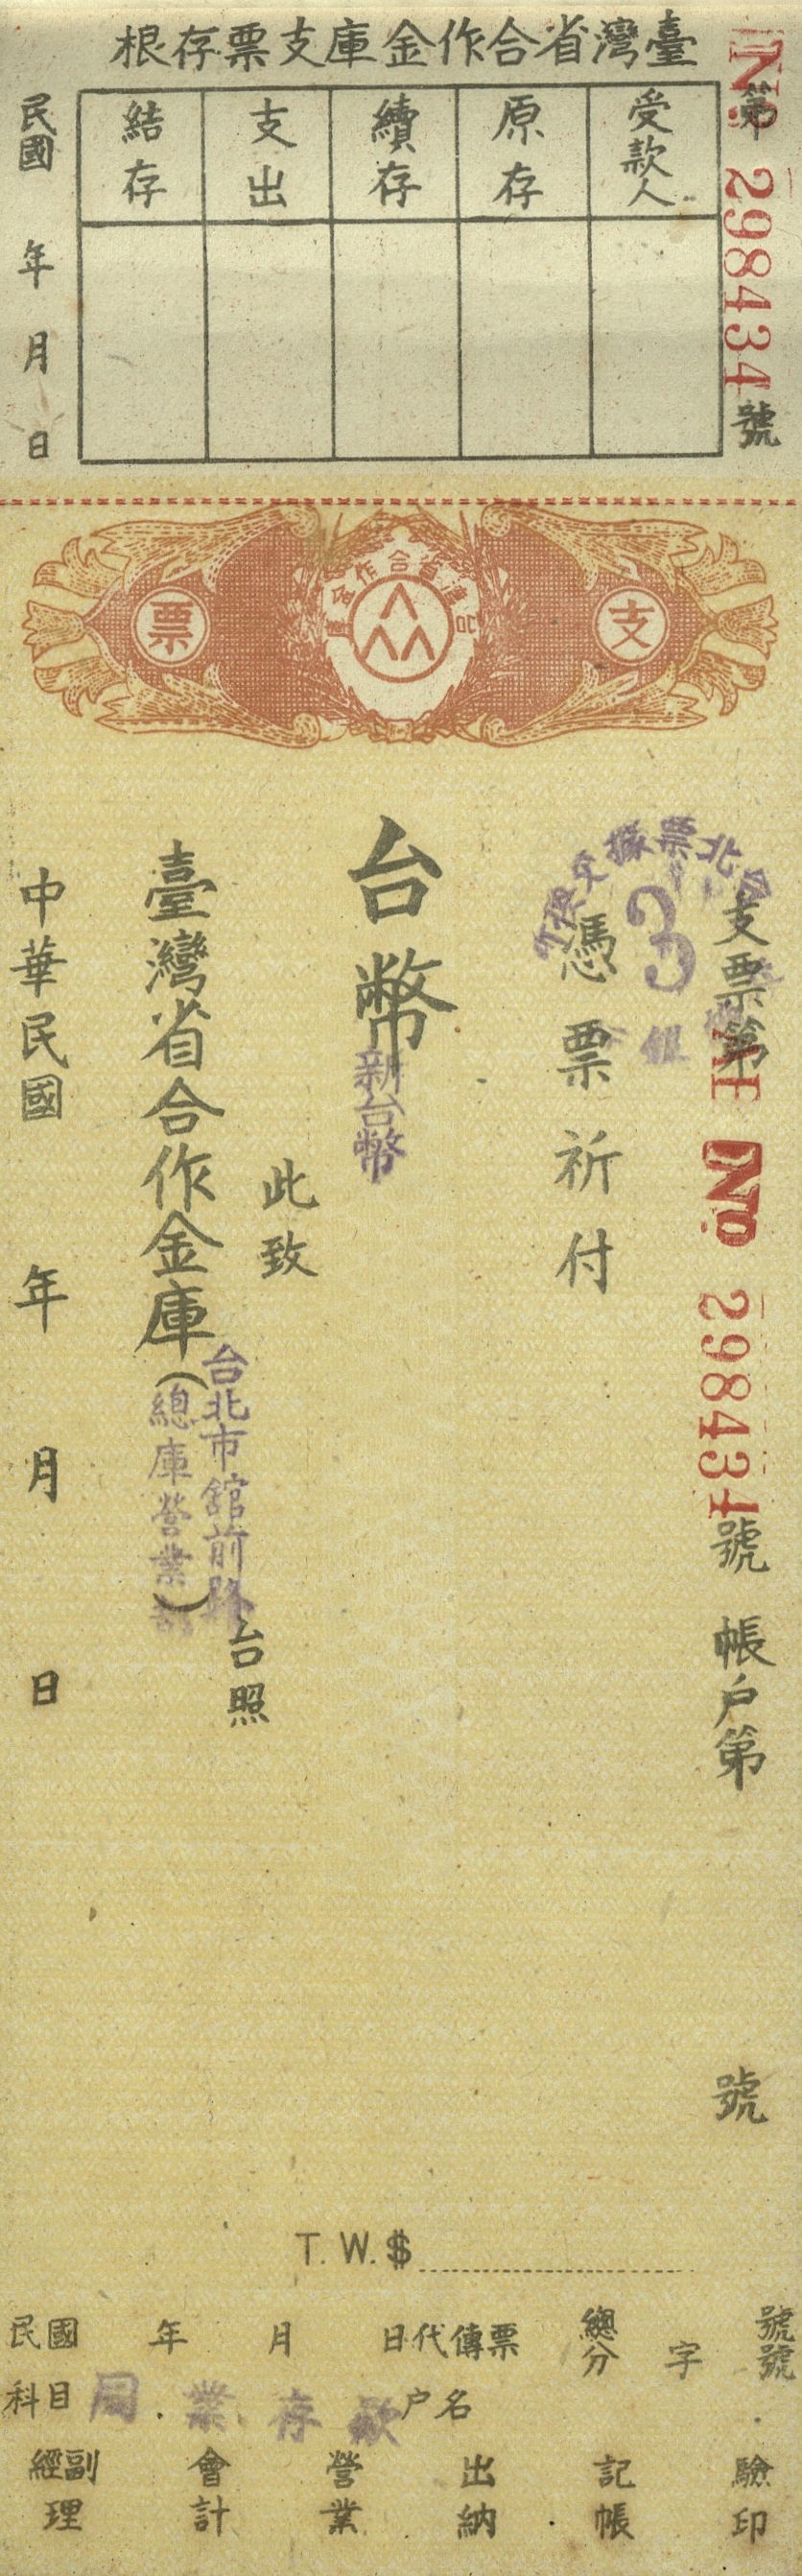 臺灣省合作金庫支票存根
第 No 298434 號
受款人
原存
續存
支出
結存
民國 年 月 日
支
臺灣省合作金庫
票
支票第 No 298434 號 帳戶第 號
台北票據交換
3
銀
憑票祈付
台幣
新台幣
此致
台北市舘前路
臺灣省合作金庫(總庫營業部)台照
中華民國 年 月 日
T. W. $
民國 年 月 日代傳票 總分 字 號號
科目 同業存款 户名
經副理 會計 營業 出納 記帳 驗印